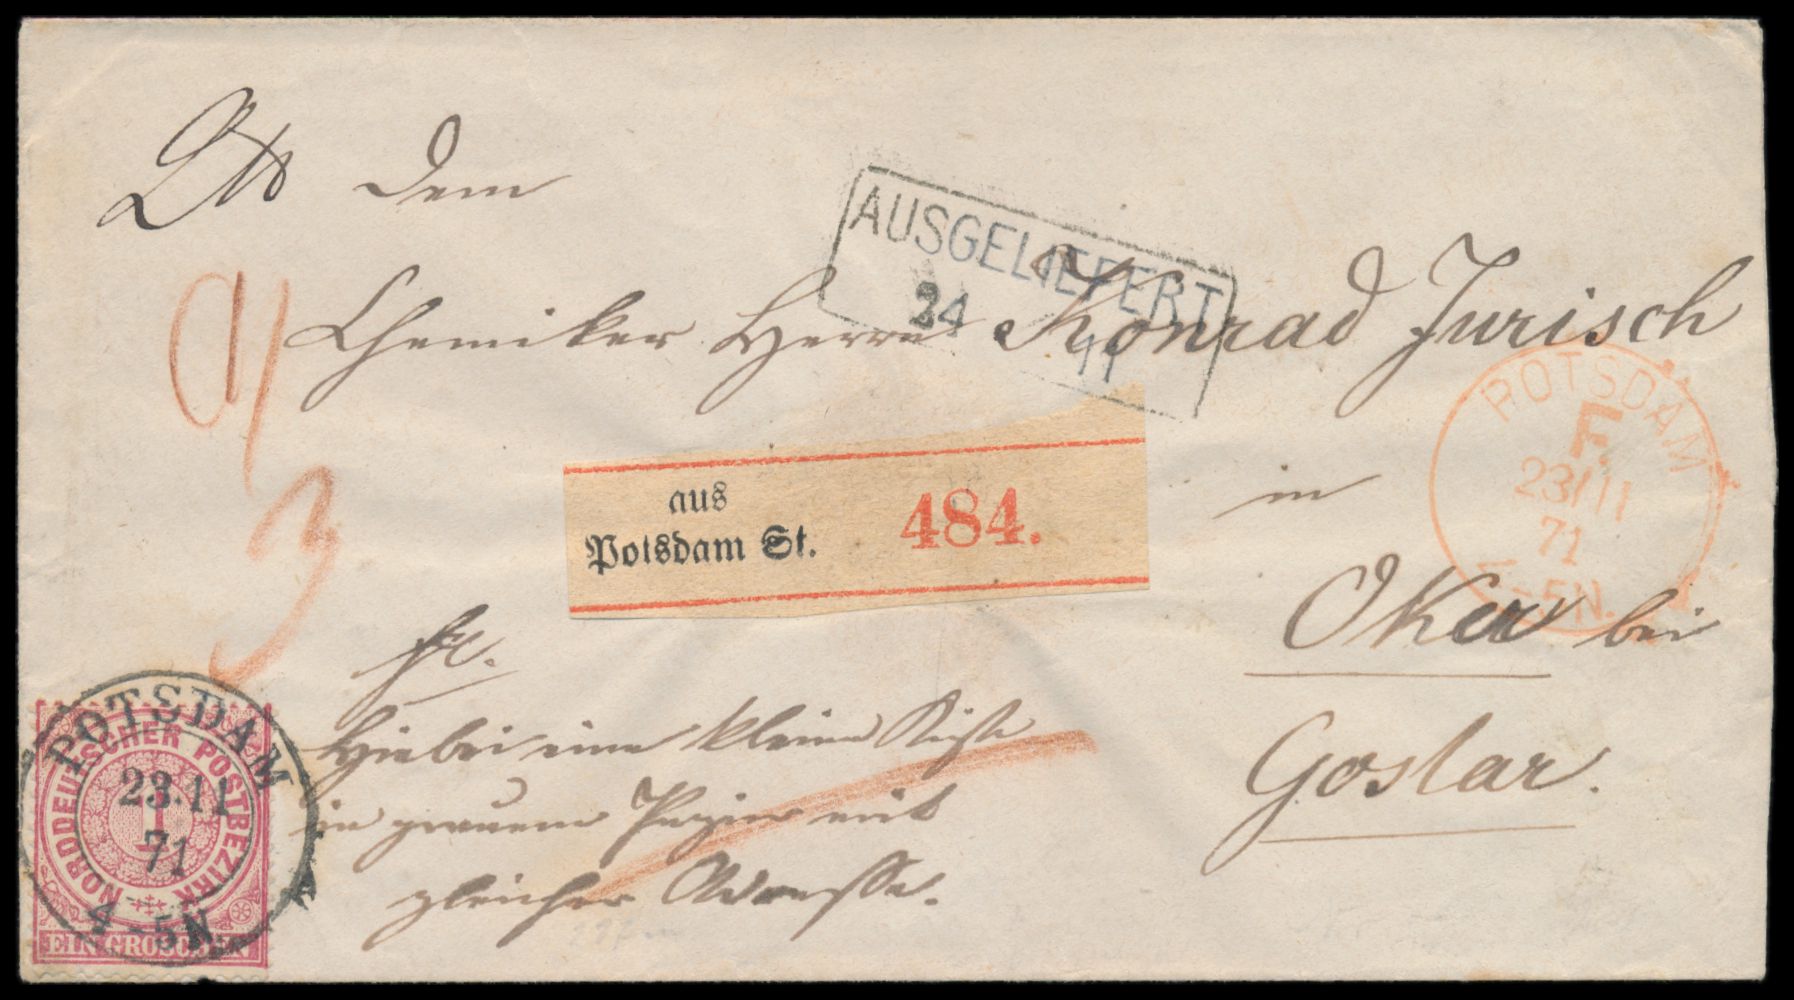 dem
AUSGELIEFERT
24 11
Chemiker Herrn Konrad Jurisch
POTSDAM
F
23/11
71
4-5N.
aus
Potsdam St. 484.
in
Oker bei
Goslar.
fr.
Hiebei eine kleine Kiste
in grauem Papier mit
gleicher Adresse.
3
POTSDAM
23.11
71
4-5N
NORDDEUTSCHER POSTBEZIRK
1
EIN GROSCHEN